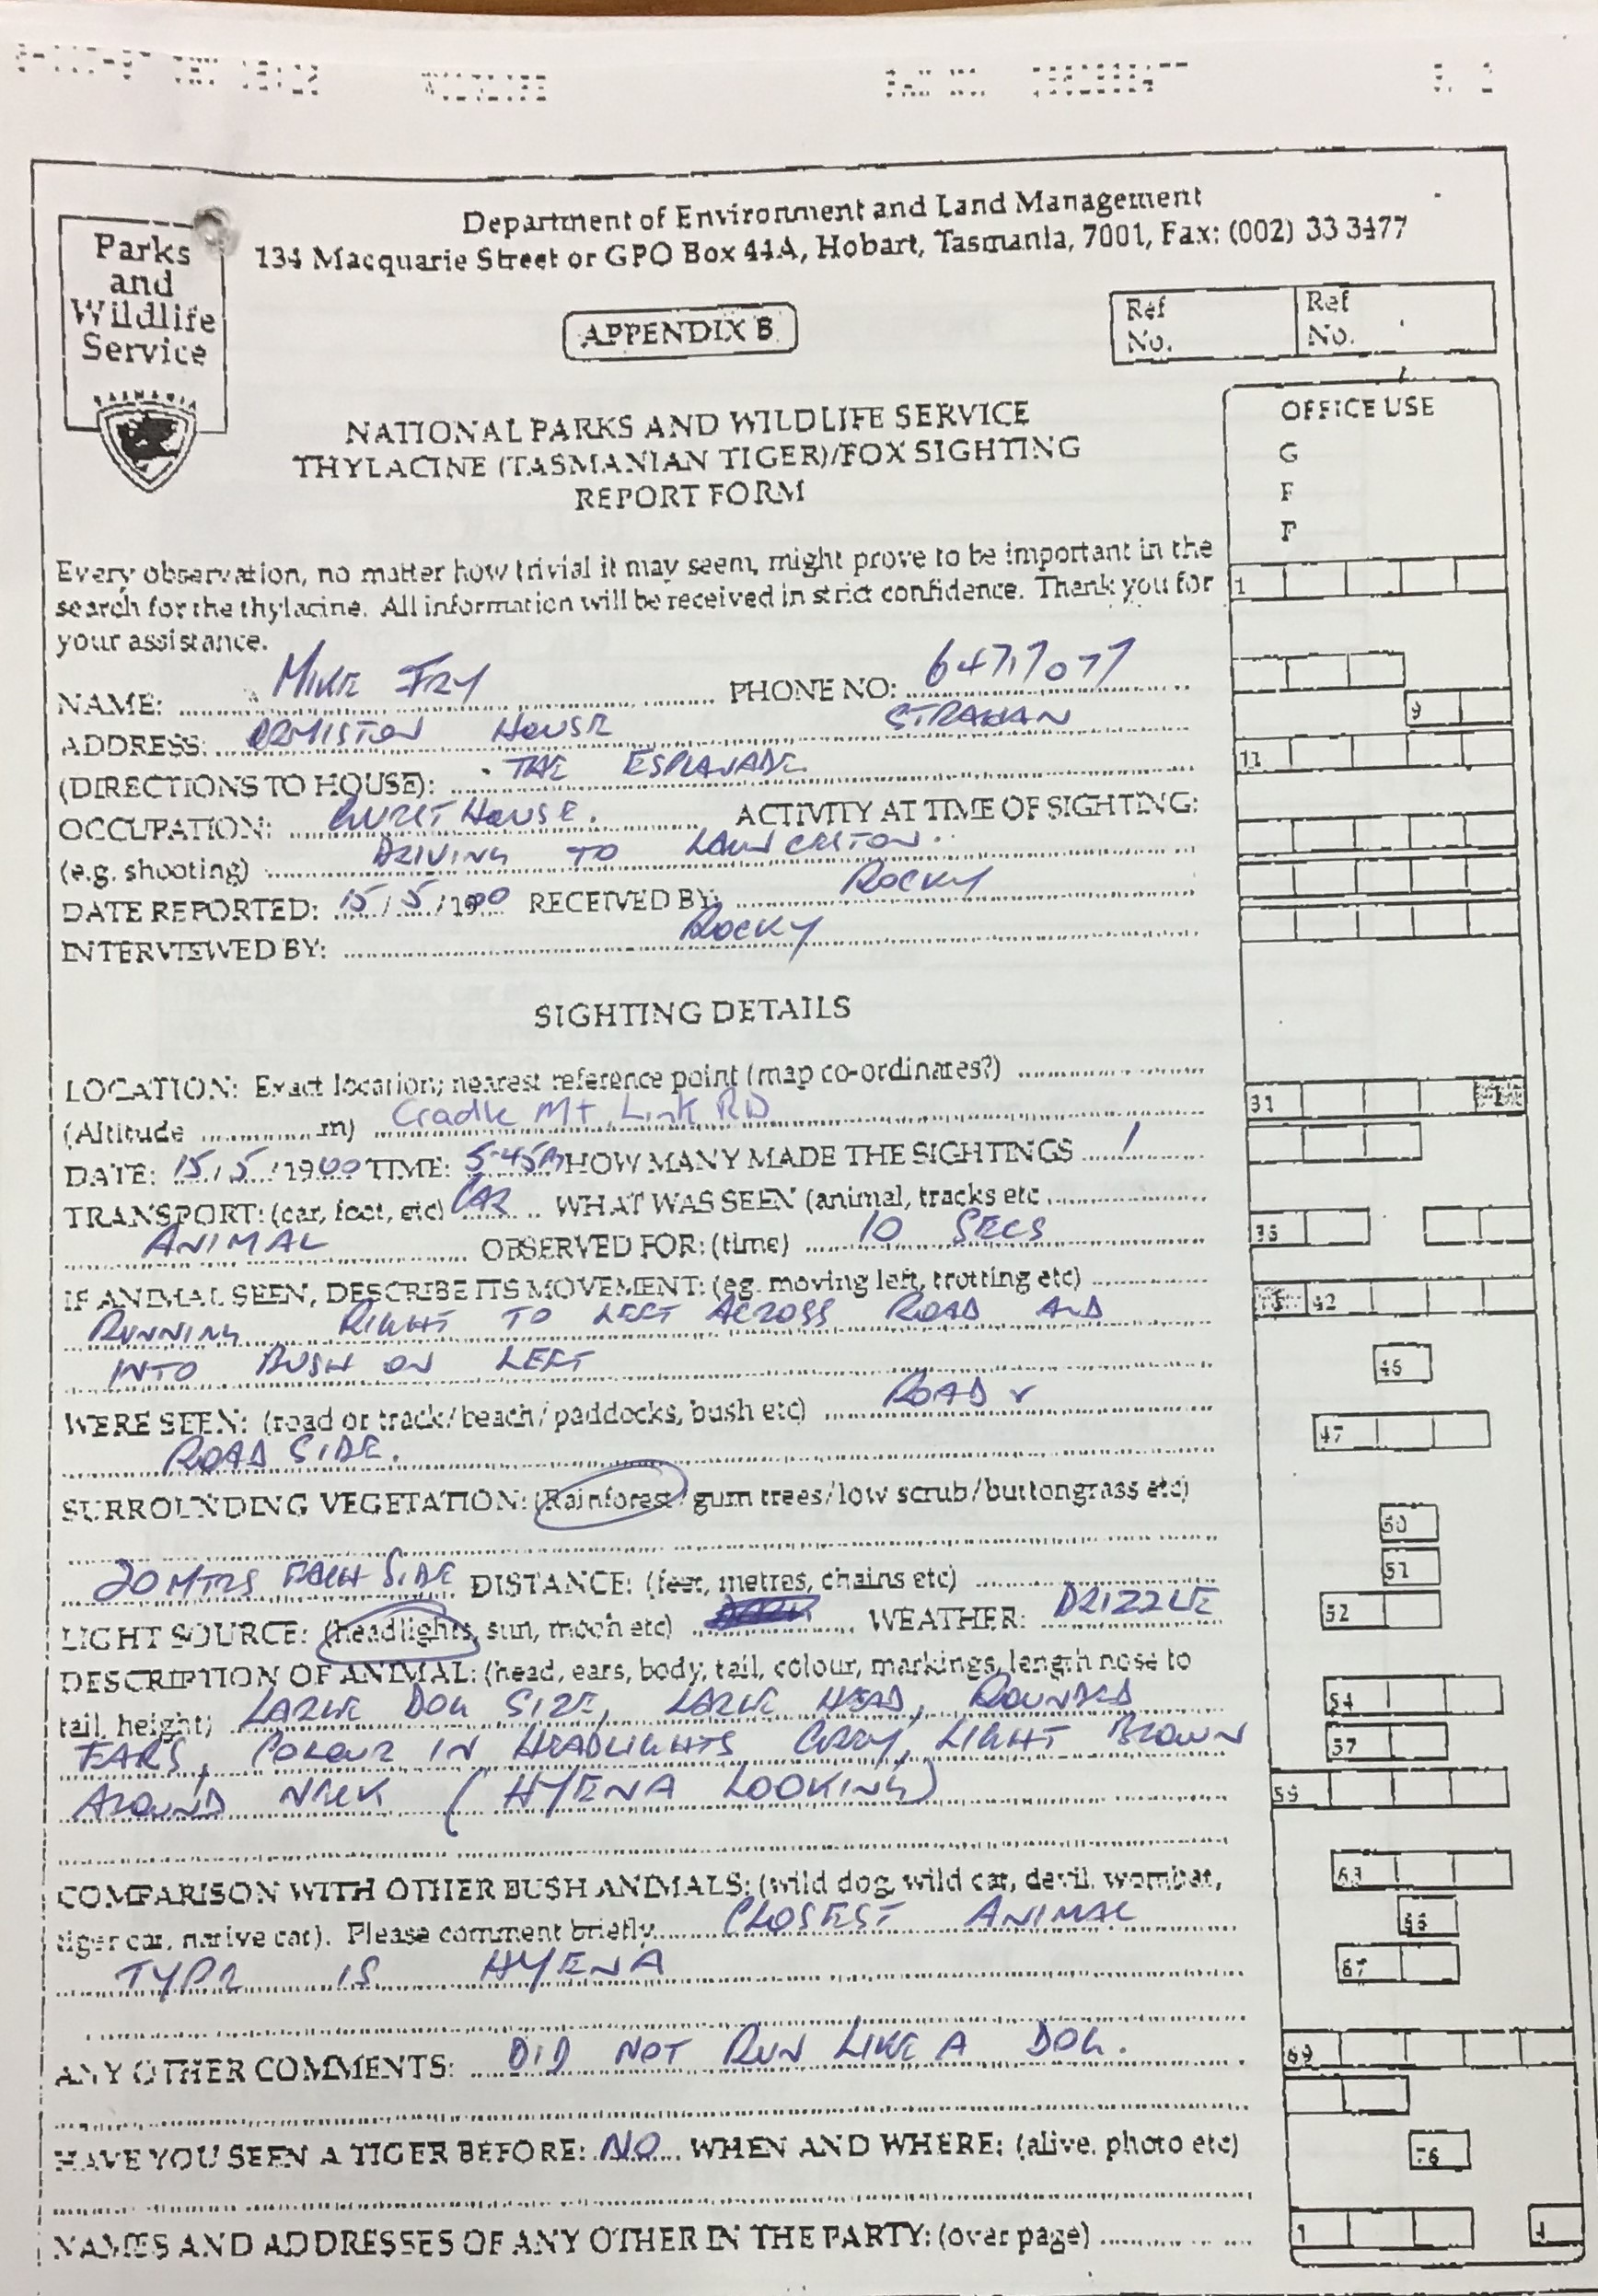 WILDLIFE
Department of Environment and Land Management
134 Macquarie Street or GPO Box 44A, Hobart, Tasmania, 7001, Fax: (002) 33 3477
Parks
and
Wildlife
Service
TASMANIA
APPENDIX B
Ref No.
Ref No.
OFFICE USE
G
F
F
NATIONAL PARKS AND WILDLIFE SERVICE
THYLACINE (TASMANIAN TIGER)/FOX SIGHTING
REPORT FORM
Every observation, no matter how trivial it may seem, might prove to be important in the
search for the thylacine. All information will be received in strict confidence. Thank you for
your assistance.
1
NAME: MIKE FRY PHONE NO: 64717077
9
ADDRESS: ORMISTON HOUSE STRAHAN
(DIRECTIONS TO HOUSE): THE ESPLANADE
11
OCCUPATION: GUEST HOUSE. ACTIVITY AT TIME OF SIGHTING:
(e.g. shooting) DRIVING TO LAUNCESTON.
DATE REPORTED: 15/5/1900 RECEIVED BY: ROCKY
INTERVIEWED BY: ROCKY
SIGHTING DETAILS
LOCATION: Exact location; nearest reference point (map co-ordinates?)
31
(Altitude m) Cradle Mt Link RD
DATE: 15/5/1900 TIME: 5-45 HOW MANY MADE THE SIGHTINGS 1
TRANSPORT: (car, foot, etc) CAR WHAT WAS SEEN (animal, tracks etc
ANIMAL OBSERVED FOR: (time) 10 SECS
IF ANIMAL SEEN, DESCRIBE ITS MOVEMENT: (eg. moving left, trotting etc)
42
RUNNING RIGHT TO LEFT ACROSS ROAD AND
INTO BUSH ON LEFT
46
WERE SEEN: (road or track/beach/paddocks, bush etc) ROAD &
47
ROAD SIDE.
SURROUNDING VEGETATION: (Rainforest/gum trees/low scrub/buttongrass etc)
50
51
20 MTRS EACH SIDE DISTANCE: (feet, metres, chains etc)
LIGHT SOURCE: (headlights, sun, moon etc) WEATHER: DRIZZLE
52
DESCRIPTION OF ANIMAL: (head, ears, body, tail, colour, markings, length nose to
tail, height) LARGE DOG SIZE, LARGE HEAD, ROUNDED
54
EARS, COLOUR IN HEADLIGHTS GREY, LIGHT BROWN
57
AROUND NECK (HYENA LOOKING)
59
COMPARISON WITH OTHER BUSH ANIMALS: (wild dog, wild cat, devil, wombat,
63
tiger cat, native cat). Please comment briefly. CLOSEST ANIMAL
66
TYPE IS HYENA
67
ANY OTHER COMMENTS: DID NOT RUN LIKE A DOG.
69
HAVE YOU SEEN A TIGER BEFORE: NO WHEN AND WHERE: (alive, photo etc)
76
NAMES AND ADDRESSES OF ANY OTHER IN THE PARTY: (over page)
1